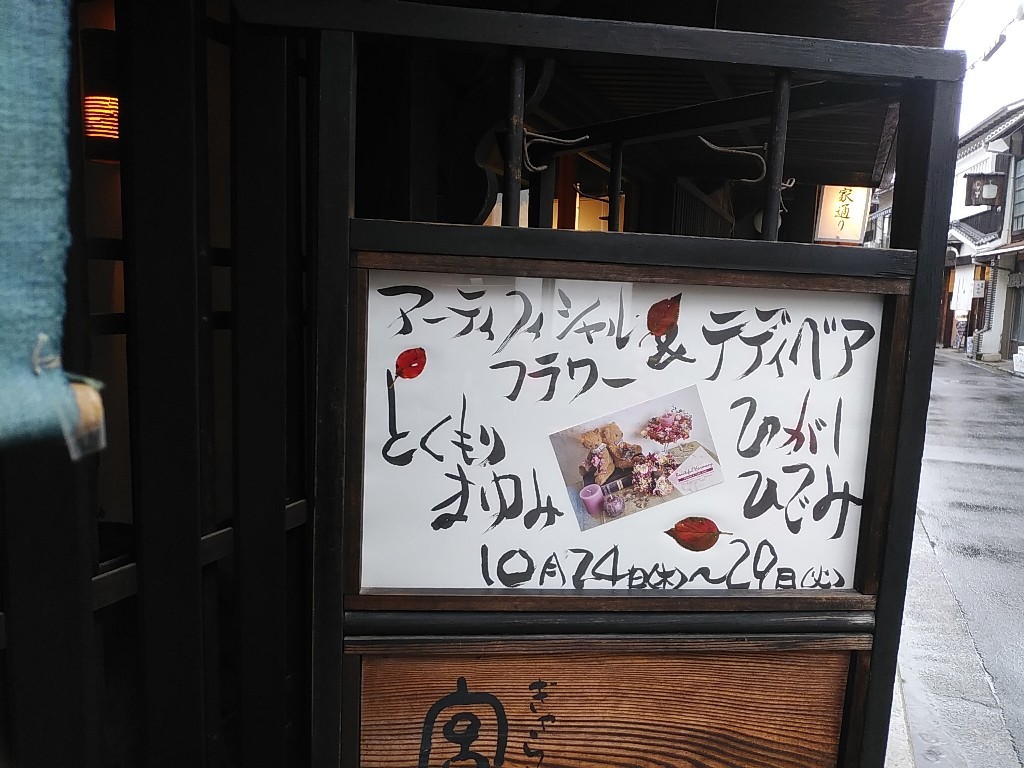 アーティフィシャル
フラワー
&
テディベア
とくもり
まゆみ
ひがし
ひでみ
10月24日(木)〜29日(火)
家通り
ぎゃら